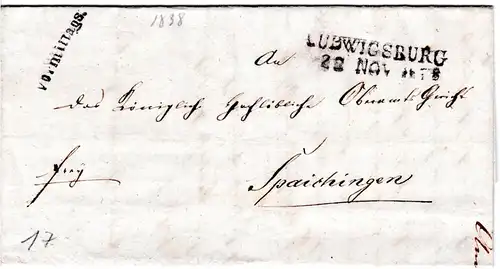 1838
Vormittags.
LUDWIGSBURG
22 NOV 1838
An
Das Königlich Hochlöbliche Oberamts Gericht
frey
Spaichingen
17